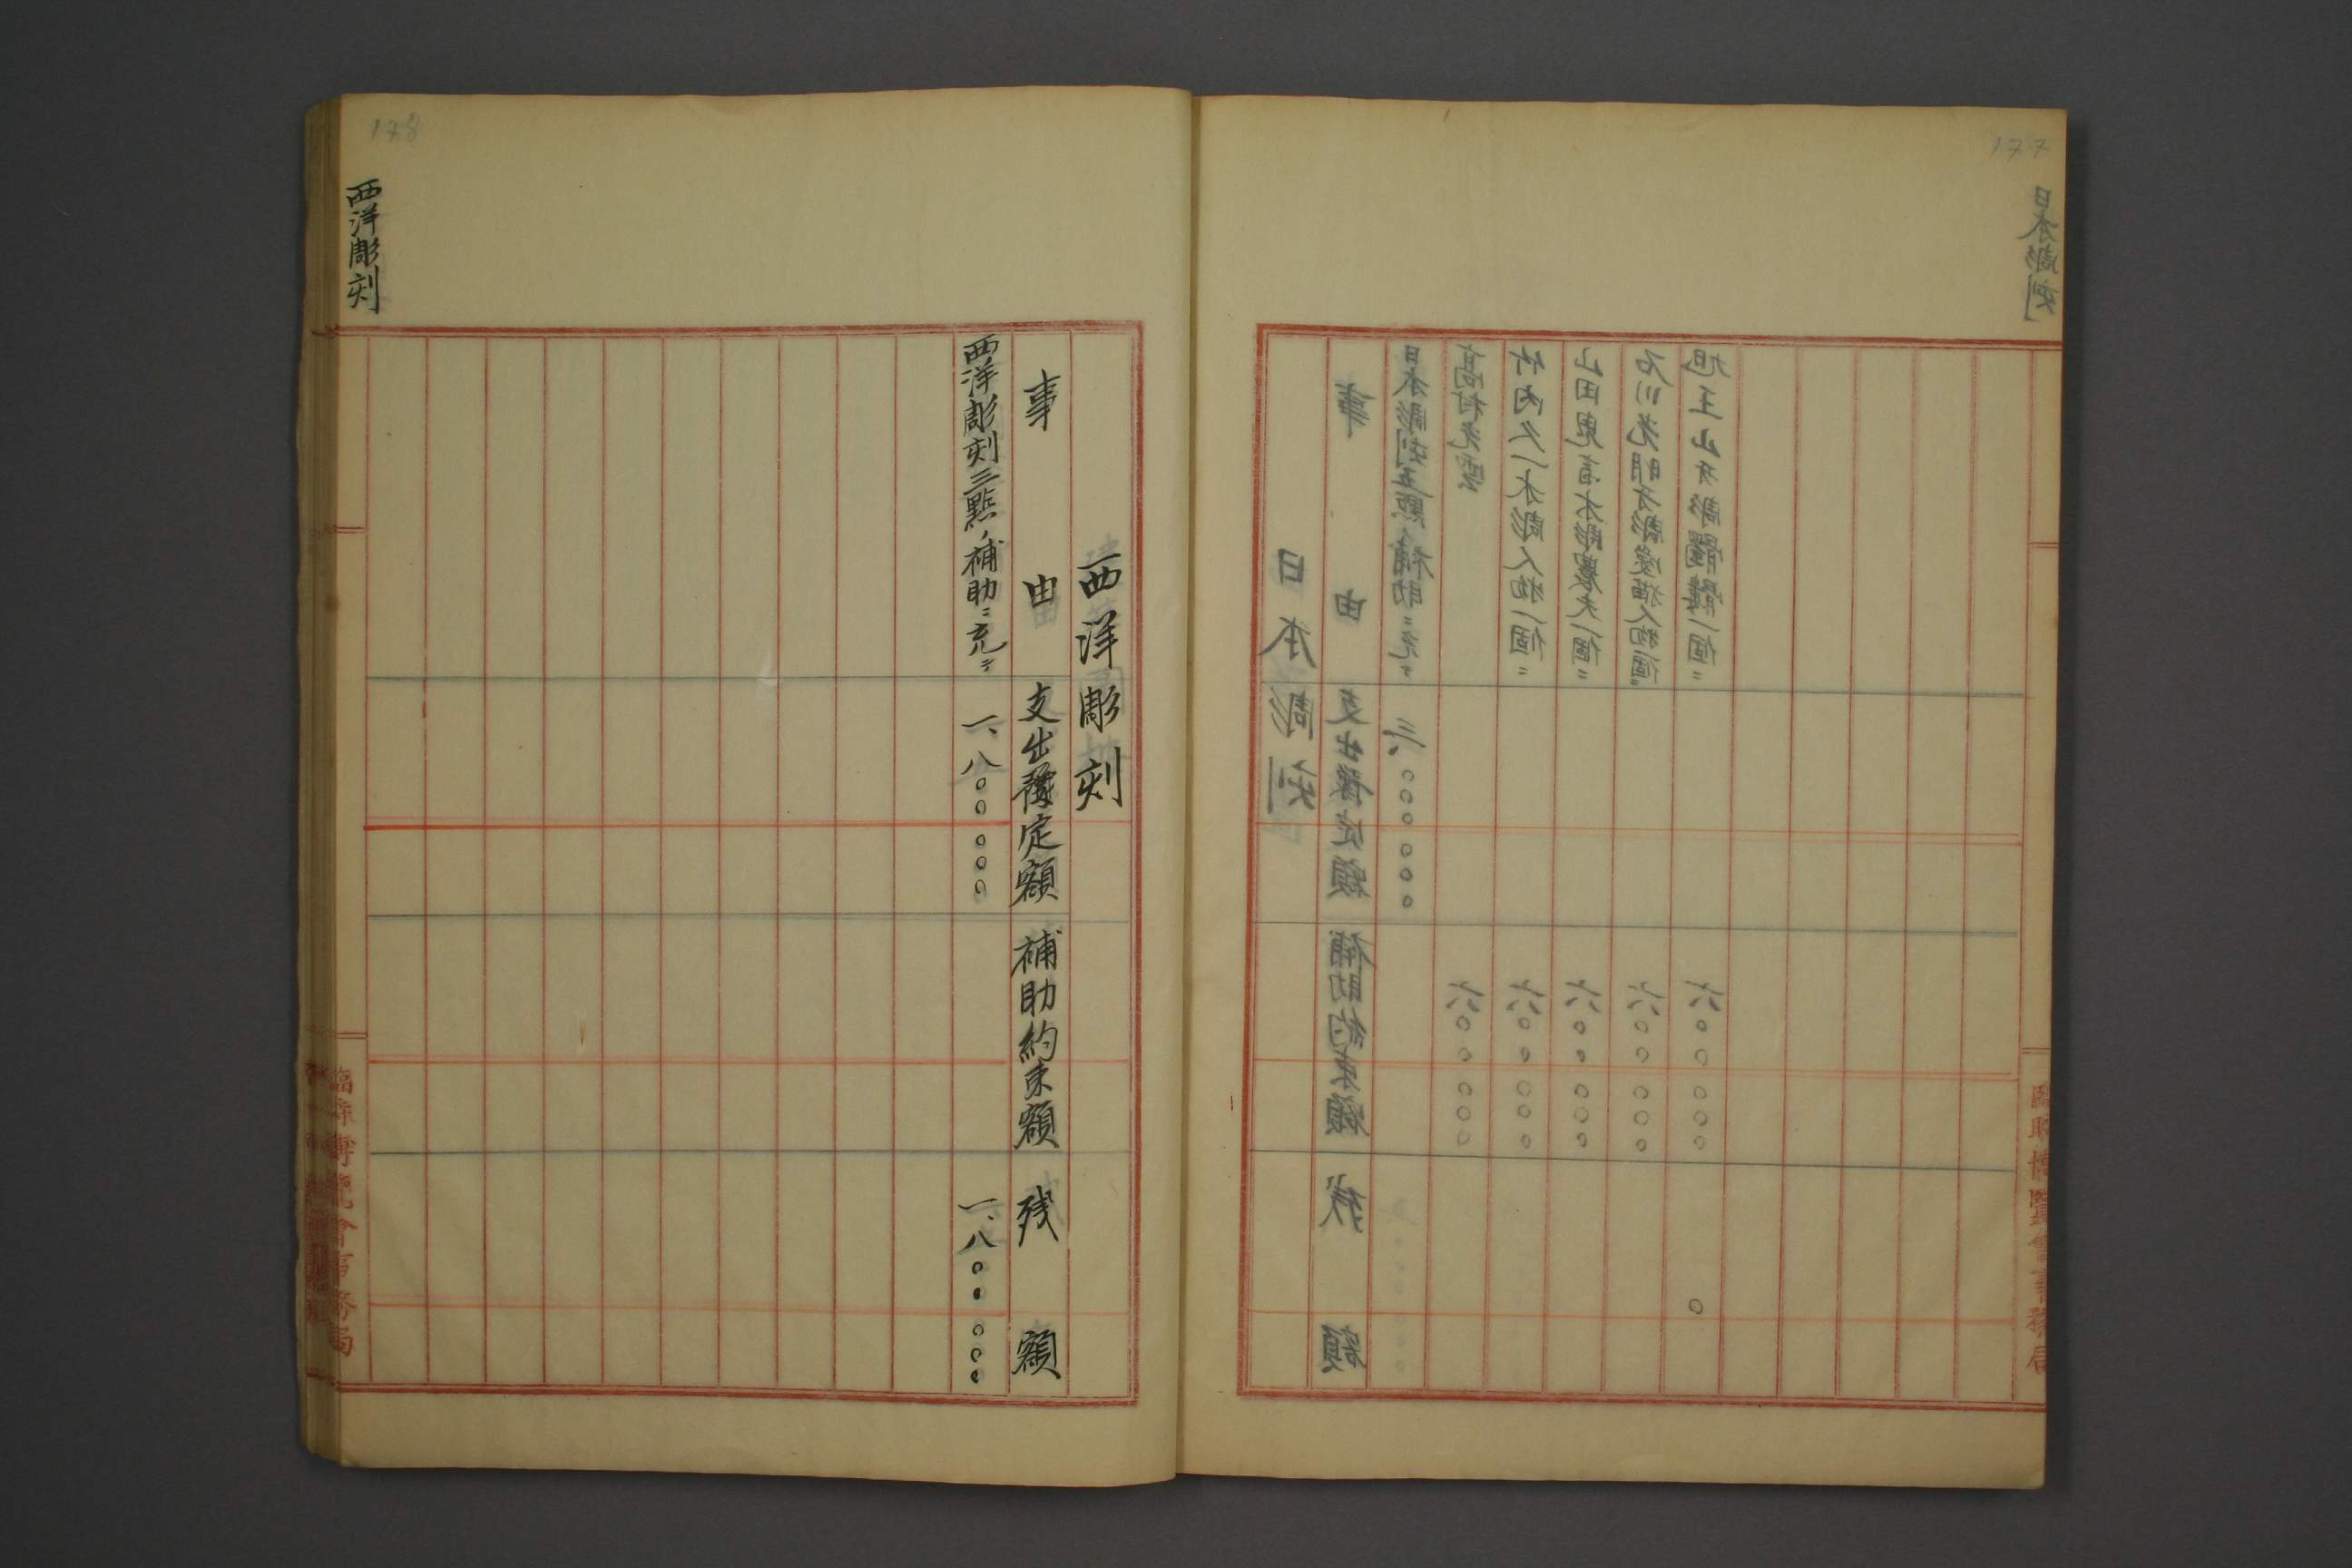 177
日本彫刻
日本彫刻
事由 支出豫定額 補助約束額 残額
日本彫刻五點ノ補助ニ充ツ 三、〇〇〇〇〇〇
高村光雲 六〇〇〇〇〇
竹内久一木彫人物一個ニ 六〇〇〇〇〇
山田鬼斎木彫農夫一個ニ 六〇〇〇〇〇
石川光明牙彫愛猫人物一個ニ 六〇〇〇〇〇
旭玉山牙彫髑髏一個ニ 六〇〇〇〇〇 〇
臨時博覽會事務局
178
西洋彫刻
西洋彫刻
事由 支出豫定額 補助約束額 残額
西洋彫刻三點ノ補助ニ充ツ 一、八〇〇〇〇〇 一、八〇〇〇〇〇
臨時博覽會事務局